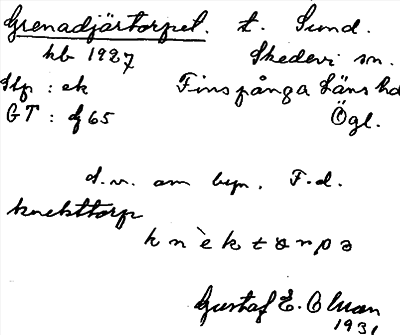 Grenadjärtorpet. t. Sund.
hb 1927 Skedevi sn.
Stp : ek Finspånga Läns hd
GT : df 65 Ögl.
d.v. om byn. F.d.
knekttorp
knèktɔrpə
Gustaf E. Olsson
1931